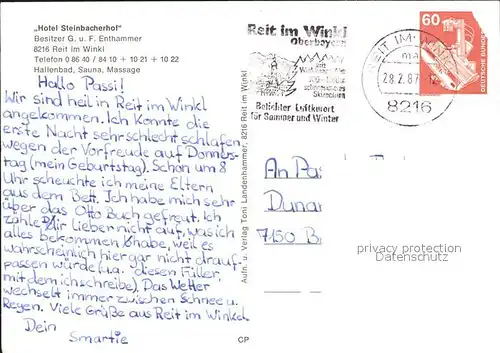 „Hotel Steinbacherhof"
Besitzer G. u. F. Enthammer
8216 Reit im Winkl
Telefon 0 86 40 / 84 10 + 10 21 + 10 22
Hallenbad, Sauna, Massage
Hallo Passi!
Wir sind heil in Reit im Winkl
angekommen. Ich konnte die
erste Nacht sehr schlecht schlafen
wegen der Vorfreude auf Donners-
tag (mein Geburtstag). Schon um 8
Uhr scheuchte ich meine Eltern
aus dem Bett. Ich habe mich sehr
über das Otto Buch gefreut. Ich
zähle Dir lieber nicht auf, was ich
alles bekommen habe, weil es
wahrscheinlich hier gar nicht drauf-
passen würde (u.a. diesen Füller,
mit dem ich schreibe). Das Wetter
wechselt immer zwischen Schnee u.
Regen. Viele Grüße aus Reit im Winkel.
Dein
Smartie
CP
Aufn. u. Verlag Toni Landenhammer, 8216 Reit im Winkl
Reit im Winkl
Oberbayern
Belichter Luftkurort
für Sommer und Winter
REIT IM WINKL
28.2.87
8216
60
DEUTSCHE BUNDESPOST
An Pas
Dunan
7150 B
privacy protection
Datenschutz